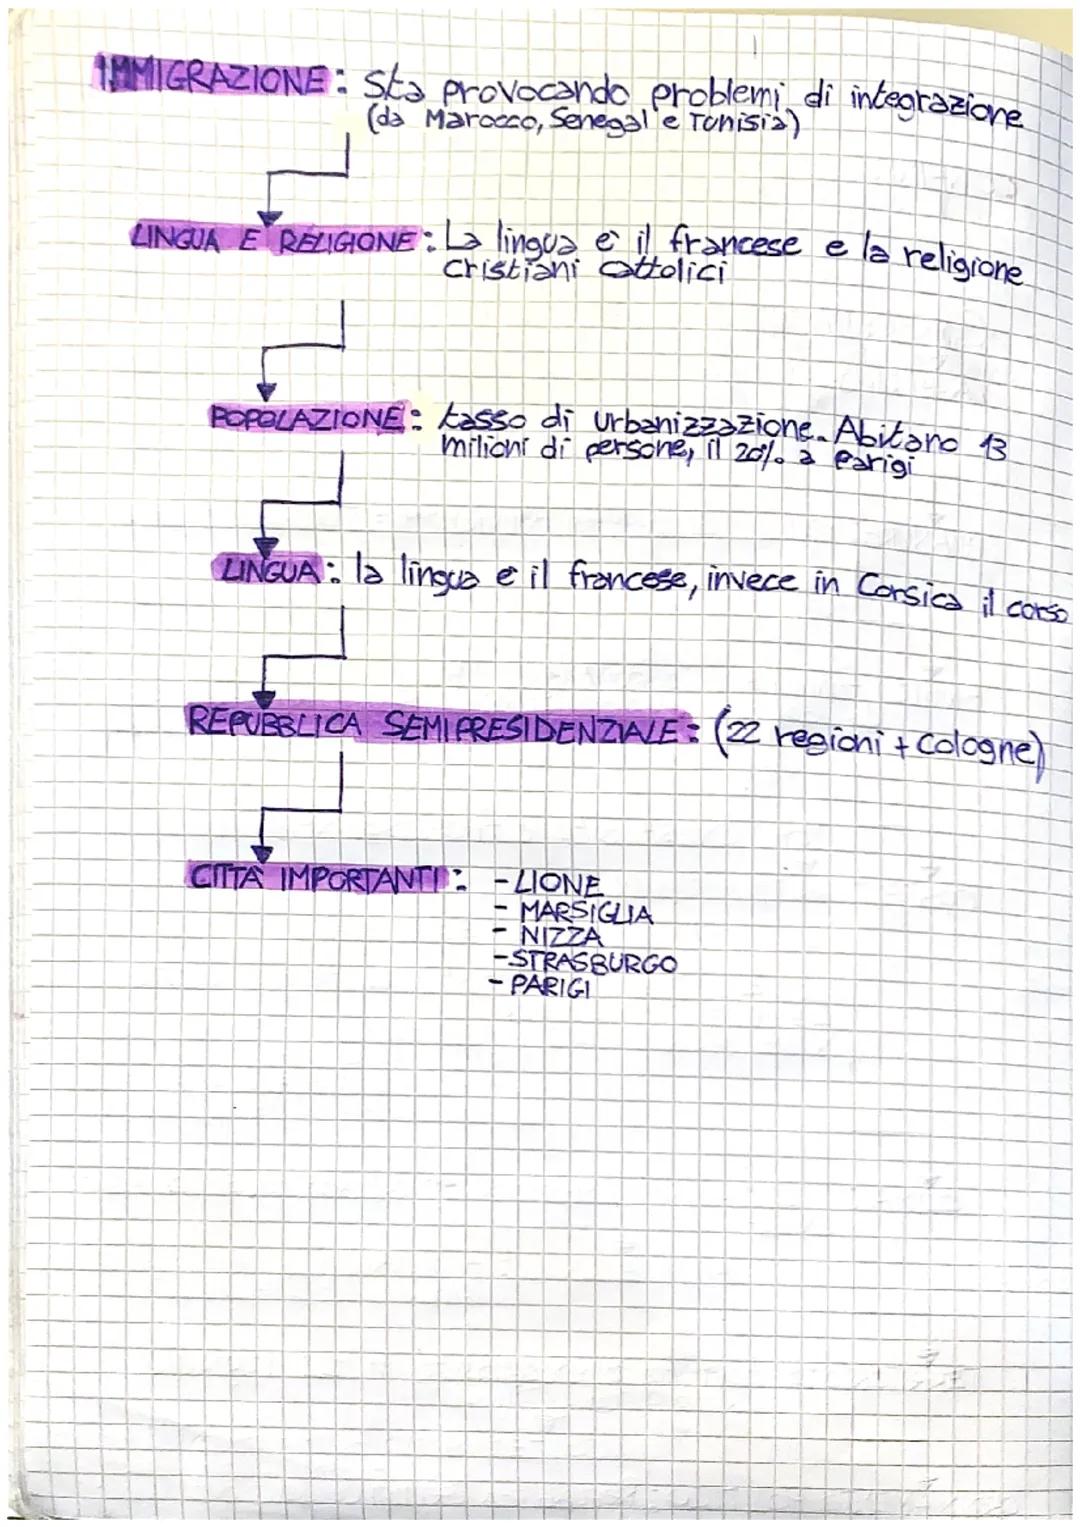 IMMIGRAZIONE: Sta provocando problemi di integrazione
(da Marocco, Senegal e Tunisia)
LINGUA E RELIGIONE: La lingua è il francese e la religione
cristiani cattolici
POPOLAZIONE: tasso di urbanizzazione. Abitano 13
milioni di persone, il 20% a Parigi
LINGUA: la lingua è il francese, invece in Corsica il corso
REPUBBLICA SEMIPRESIDENZIALE: (22 regioni + Cologne)
CITTÀ IMPORTANTI: - LIONE
- MARSIGLIA
- NIZZA
- STRASBURGO
- PARIGI